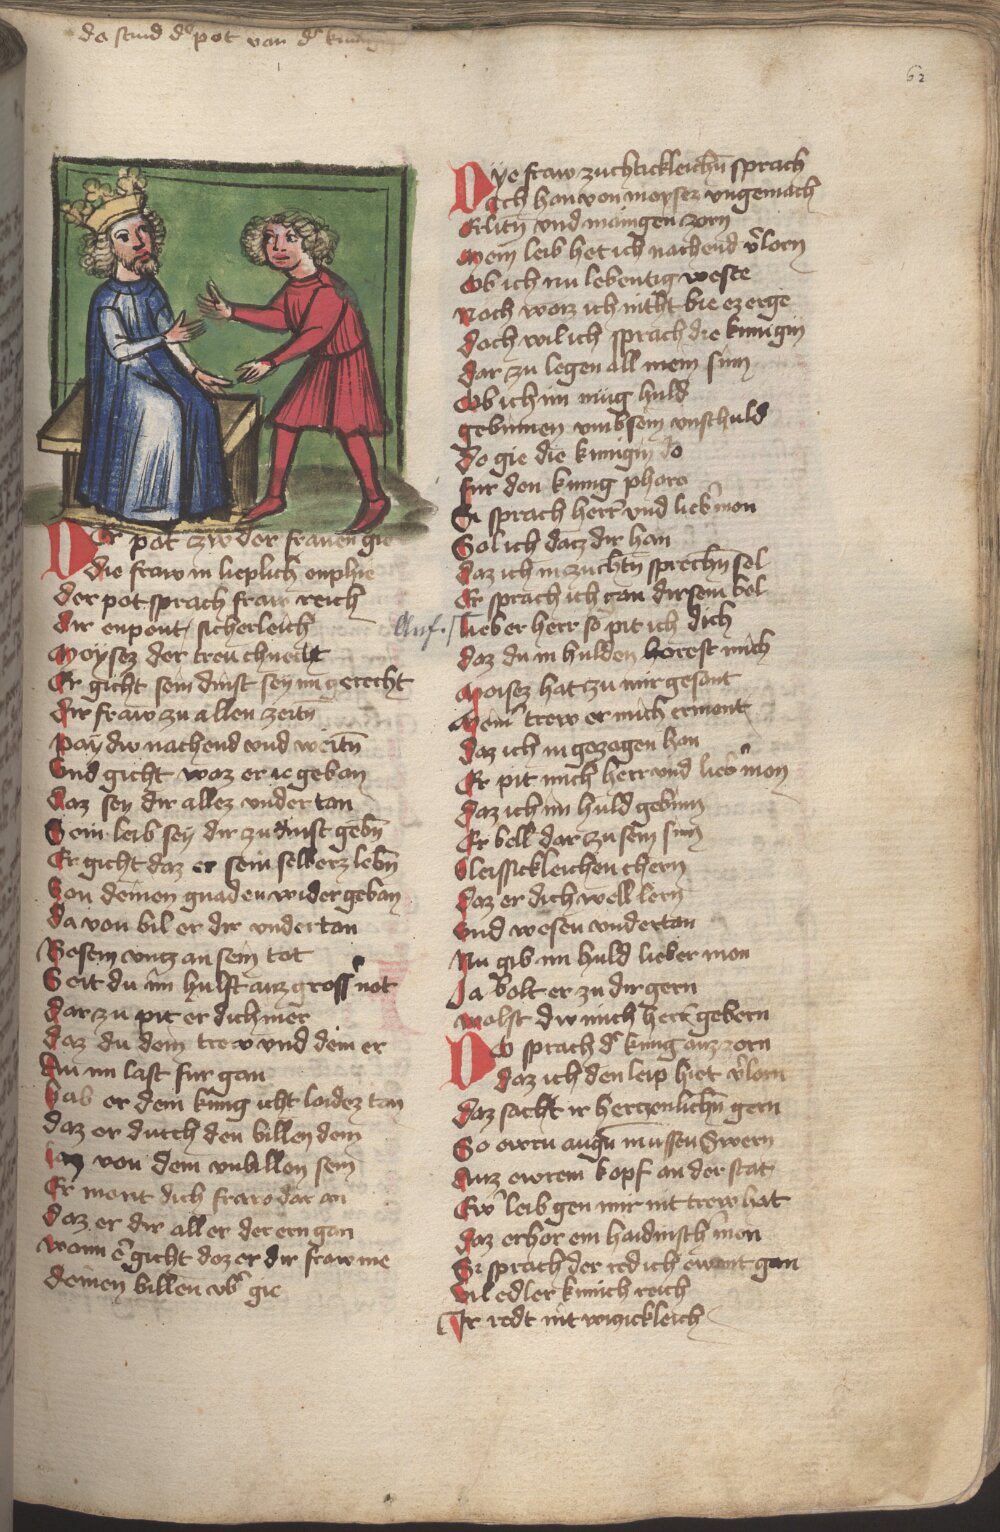 da stund dˢ pot van dˢ
62
Der pot zw der frawen gie
die fraw in lieplich enphie
der pot sprach fraw reich
dir enpeut sicherleich
Moysez der treu chnecht
Er gicht sein dinst sey im gerecht
Dir fraw zu allen zeitn
Paÿ dir nachend und weitn
Vnd gicht waz er ie geban
Daz sey dir allez vnder tan
Sein leib seÿ dir zu dinst gebn
Er gicht daz er sein selberz lebn
Von deinen gnaden wider geban
Da von bil er dir vndertan
Besem vntz an sein tot
Seit du im hulft auz grosser not
Dar zu pit er dich mer
Daz du dein trew vnd dein er
An im last fur gan
Hab er dem kunig icht laidez tan
Daz er durch den billen dein
von dem vnbillen sein
Er mont dich fraw dar an
Daz er dir aller der ern gan
Wann er gicht daz er dir fraw nie
deinen billen vbˢ gie
Dye fraw zuchtickleichn sprach
Ich han von moysez vngemach
Erlitn vnd manigen zorn
Mein leib het ich nachend vˢlorn
Ob ich nu lebentig weste
Noch waiz ich nitht bie ez erge
Doch wil ich sprach die kunigin
dar zu legen all mein sinn
Ob ich im müg huld
gebinnen vmb sein vnschuld
Do gie die kunigin do
fur den kunig pharo
Si sprach herr vnd lieber mon
Sol ich daz dir han
Daz ich in zuchtn sprechn sol
Er sprach ich gan dirs em bol
Anf. lieber herr so pit ich dich
Daz du in hulden horest mich
Moisez hat zu mir gesant
Meinˢ trew er mich ermont
Daz ich in gezogen han
Er pit mich herr vnd lieber mon
Daz ich im huld gebinn
Er bell dar zu sein sinn
Vleissickleichen chern
Daz er dich well lern
Vnd wesen vndertan
Nu gib im huld lieber mon
Ja bolt er zu dir gern
Wolst dw mich herr gebern
Do sprach dˢ kunig auz zorn
Daz ich den leip hiet vˢlorn
Daz sacht ir hertzenlichn gern
So ewru augn mussen swern
Auz ewrem kopf an der stat
Ewˢ leib gen mir nit trew hat
Daz erbor ein haidnisch mon
Si sprach der red ich ew nit gan
Vil edler kunich reich
Ir redt nit wiczickleich